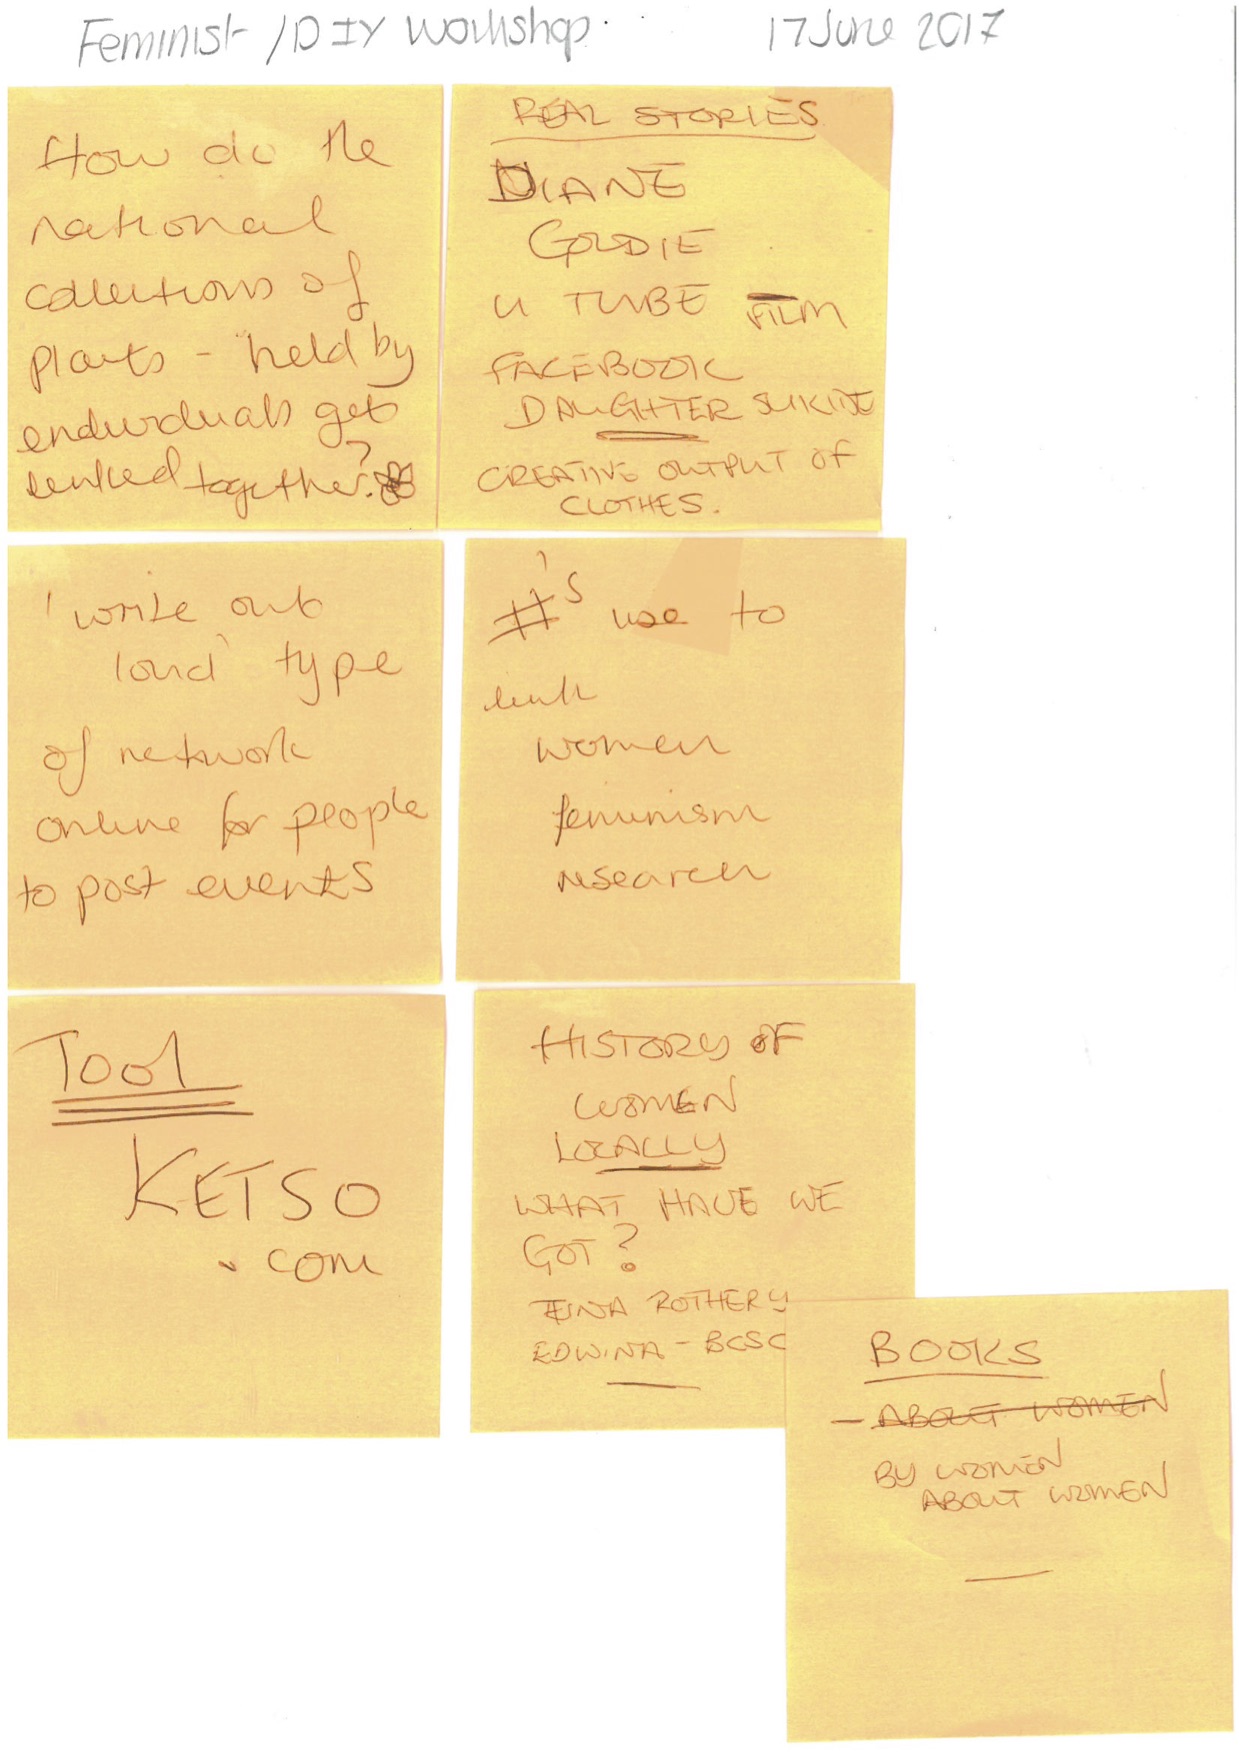 Feminist/DIY Workshop. 17 June 2017
How do the
national
collections of
plants - held by
endividuals get
linked together?
REAL STORIES
DIANE
GOLDIE
U TUBE FILM
FACEBOOK
DAUGHTER SUICIDE
CREATIVE OUTPUT OF
CLOTHES.
'write out
loud' type
of network
online for people
to post events
#'s use to
link
women
feminism
research
Tool
KETSO
.com
HISTORY OF
WOMEN
LOCALLY
WHAT HAVE WE
GOT?
TINA ROTHERY
EDWINA - BCSC
BOOKS
- ABOUT WOMEN
BY WOMEN
ABOUT WOMEN